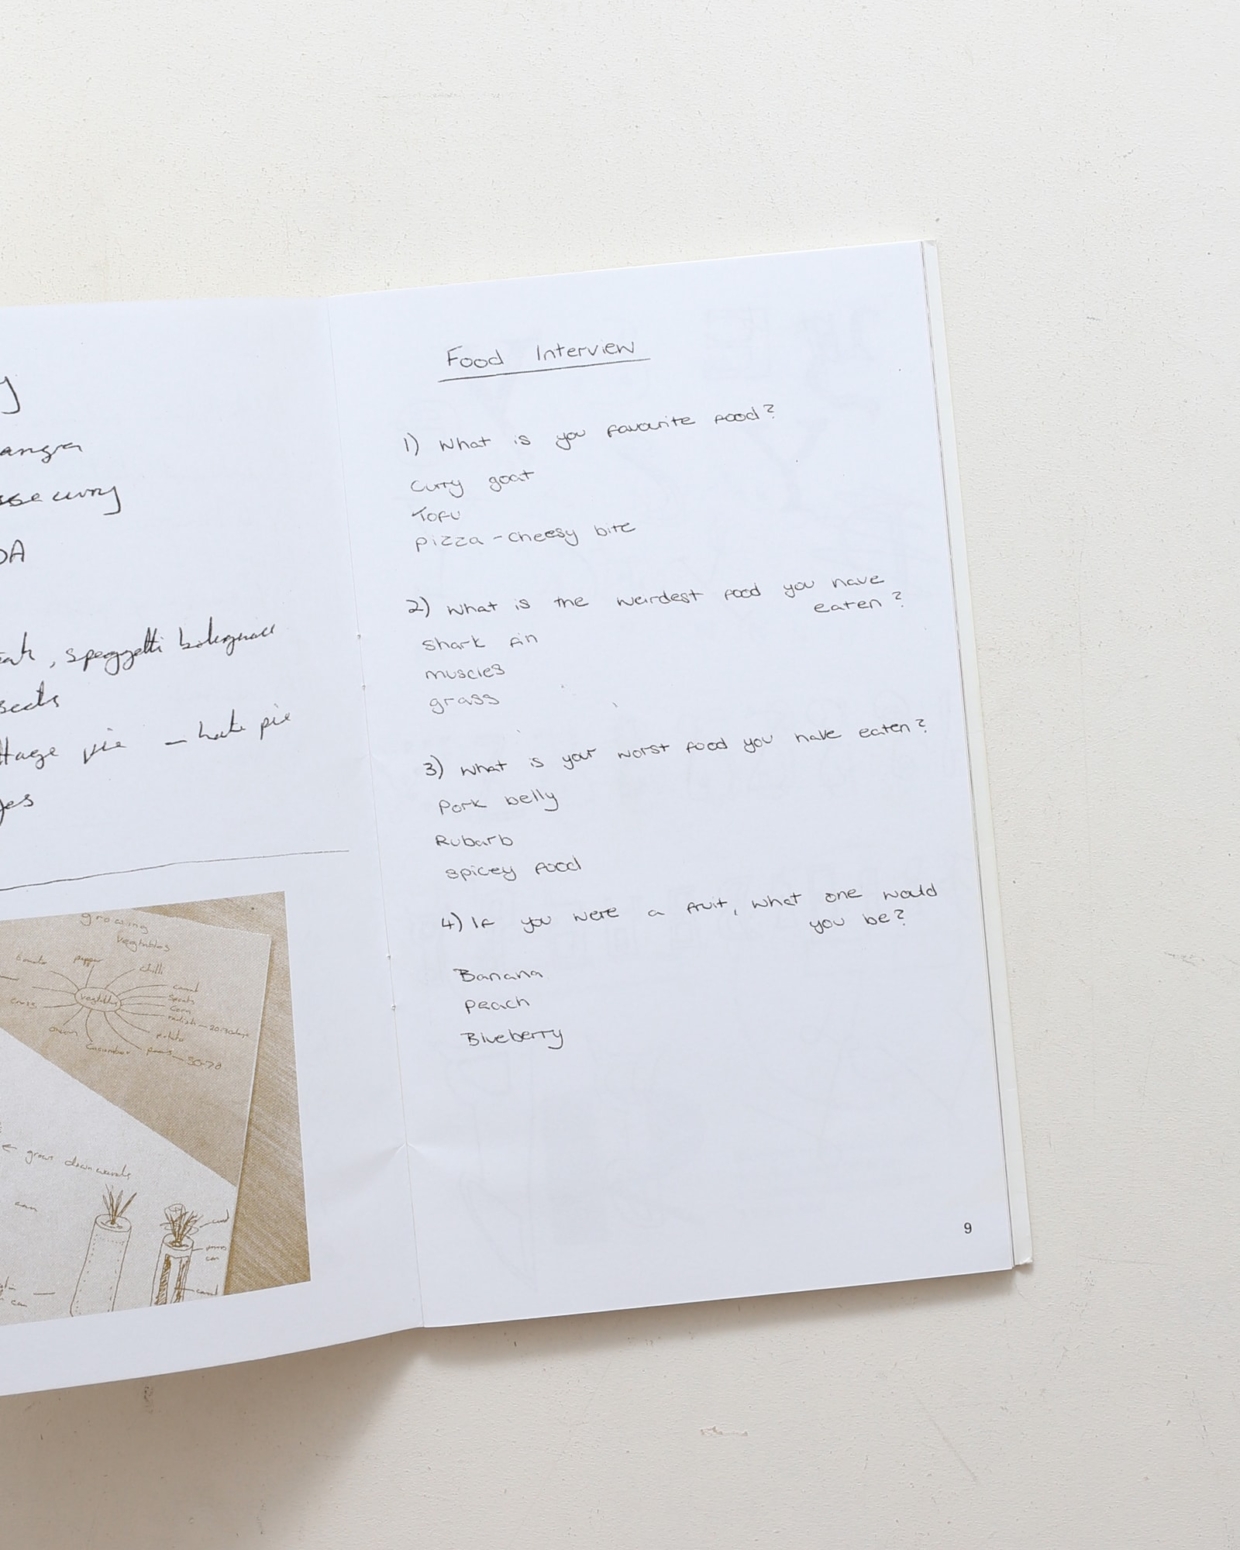 y
anga
sse curry
DA
, spaggetti
seeds
ttage pie - hate pie
ges
growing
vegtables
tomato
pepper
chilli
vegtables
carrot
corn
cress
onion
potato
cucumber
← grows downwards
can
can
Food Interview
1) What is you favourite food?
Curry goat
Tofu
pizza - cheesy bite
2) What is the weirdest food you have
eaten?
shark fin
muscles
grass
3) What is your worst food you have eaten?
Pork belly
Rubarb
spicey food
4) If you were a fruit, what one would
you be?
Banana
peach
Blueberry
9